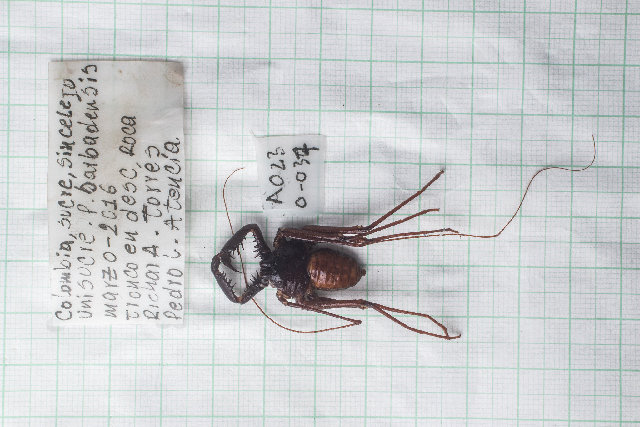 Colombia, sucre, sincelejo
unisucre. P. barbadensis
marzo-2016
tronco en desc, roca
Richar A. Torres
Pedro L. Atencia.
A023
0-037